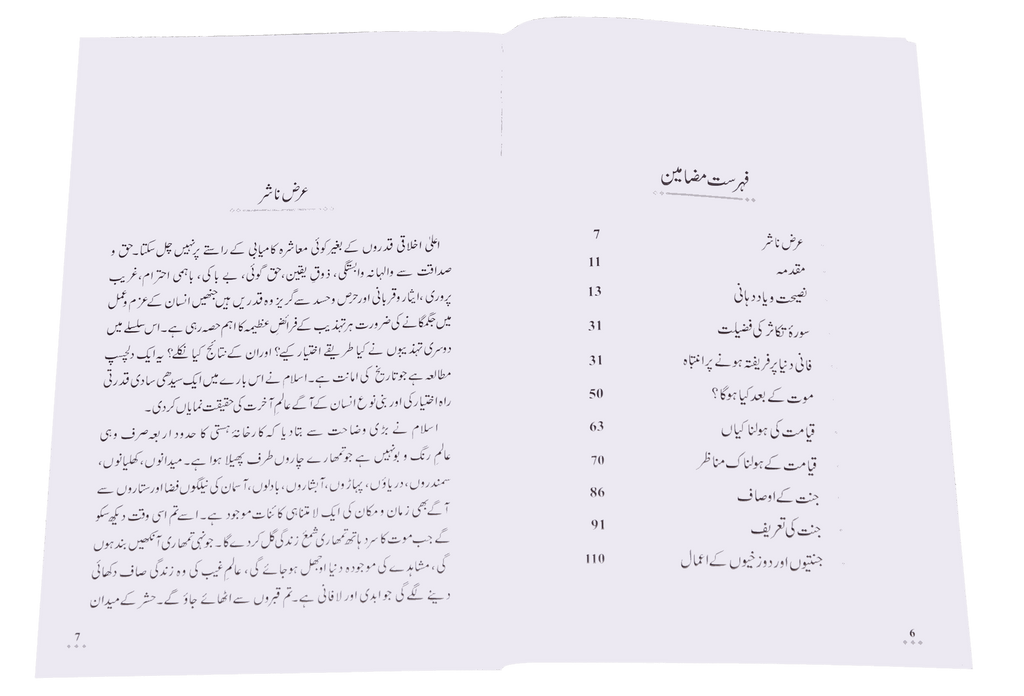 فہرست مضامین
عرض ناشر 7
مقدمہ 11
نصیحت و یاد دہانی 13
سورۂ تکاثر کی فضیلت 31
فانی دنیا پر فریفتہ ہونے پر انتباہ 31
موت کے بعد کیا ہوگا؟ 50
قیامت کی ہولناکیاں 63
قیامت کے ہولناک مناظر 70
جنت کے اوصاف 86
جنت کی تعریف 91
جنتیوں اور دوزخیوں کے اعمال 110
6
عرض ناشر
اعلیٰ اخلاقی قدروں کے بغیر کوئی معاشرہ کامیابی کے راستے پر نہیں چل سکتا۔ حق و
صداقت سے والہانہ وابستگی، ذوق یقین، حق گوئی، بے باکی، باہمی احترام، غریب
پروری، ایثار و قربانی اور حرص و حسد سے گریز وہ قدریں ہیں جنھیں انسان کے عزم و عمل
میں جگمگانے کی ضرورت ہر تہذیب کے فرائض عظیمہ کا اہم حصہ رہی ہے۔ اس سلسلے میں
دوسری تہذیبوں نے کیا طریقے اختیار کیے؟ اور ان کے نتائج کیا نکلے؟ یہ ایک دلچسپ
مطالعہ ہے جو تاریخ کی امانت ہے۔ اسلام نے اس بارے میں ایک سیدھی سادی قدرتی
راہ اختیار کی اور بنی نوع انسان کے آگے عالم آخرت کی حقیقت نمایاں کر دی۔
اسلام نے بڑی وضاحت سے بتا دیا کہ کارخانۂ ہستی کا حدود اربعہ صرف وہی
عالمِ رنگ و بو نہیں ہے جو تمھارے چاروں طرف پھیلا ہوا ہے۔ میدانوں، کھلیانوں،
سمندروں، دریاؤں، پہاڑوں، آبشاروں، بادلوں، آسمان کی نیلگوں فضا اور ستاروں سے
آگے بھی زمان و مکان کی ایک لا متناہی کائنات موجود ہے۔ اسے تم اسی وقت دیکھ سکو
گے جب موت کا سرد ہاتھ تمھاری شمعِ زندگی گل کر دے گا۔ جونہی تمھاری آنکھیں بند ہوں
گی، مشاہدے کی موجودہ دنیا اوجھل ہو جائے گی، عالمِ غیب کی وہ زندگی صاف دکھائی
دینے لگے گی جو ابدی اور لافانی ہے۔ تم قبروں سے اٹھائے جاؤ گے۔ حشر کے میدان
7